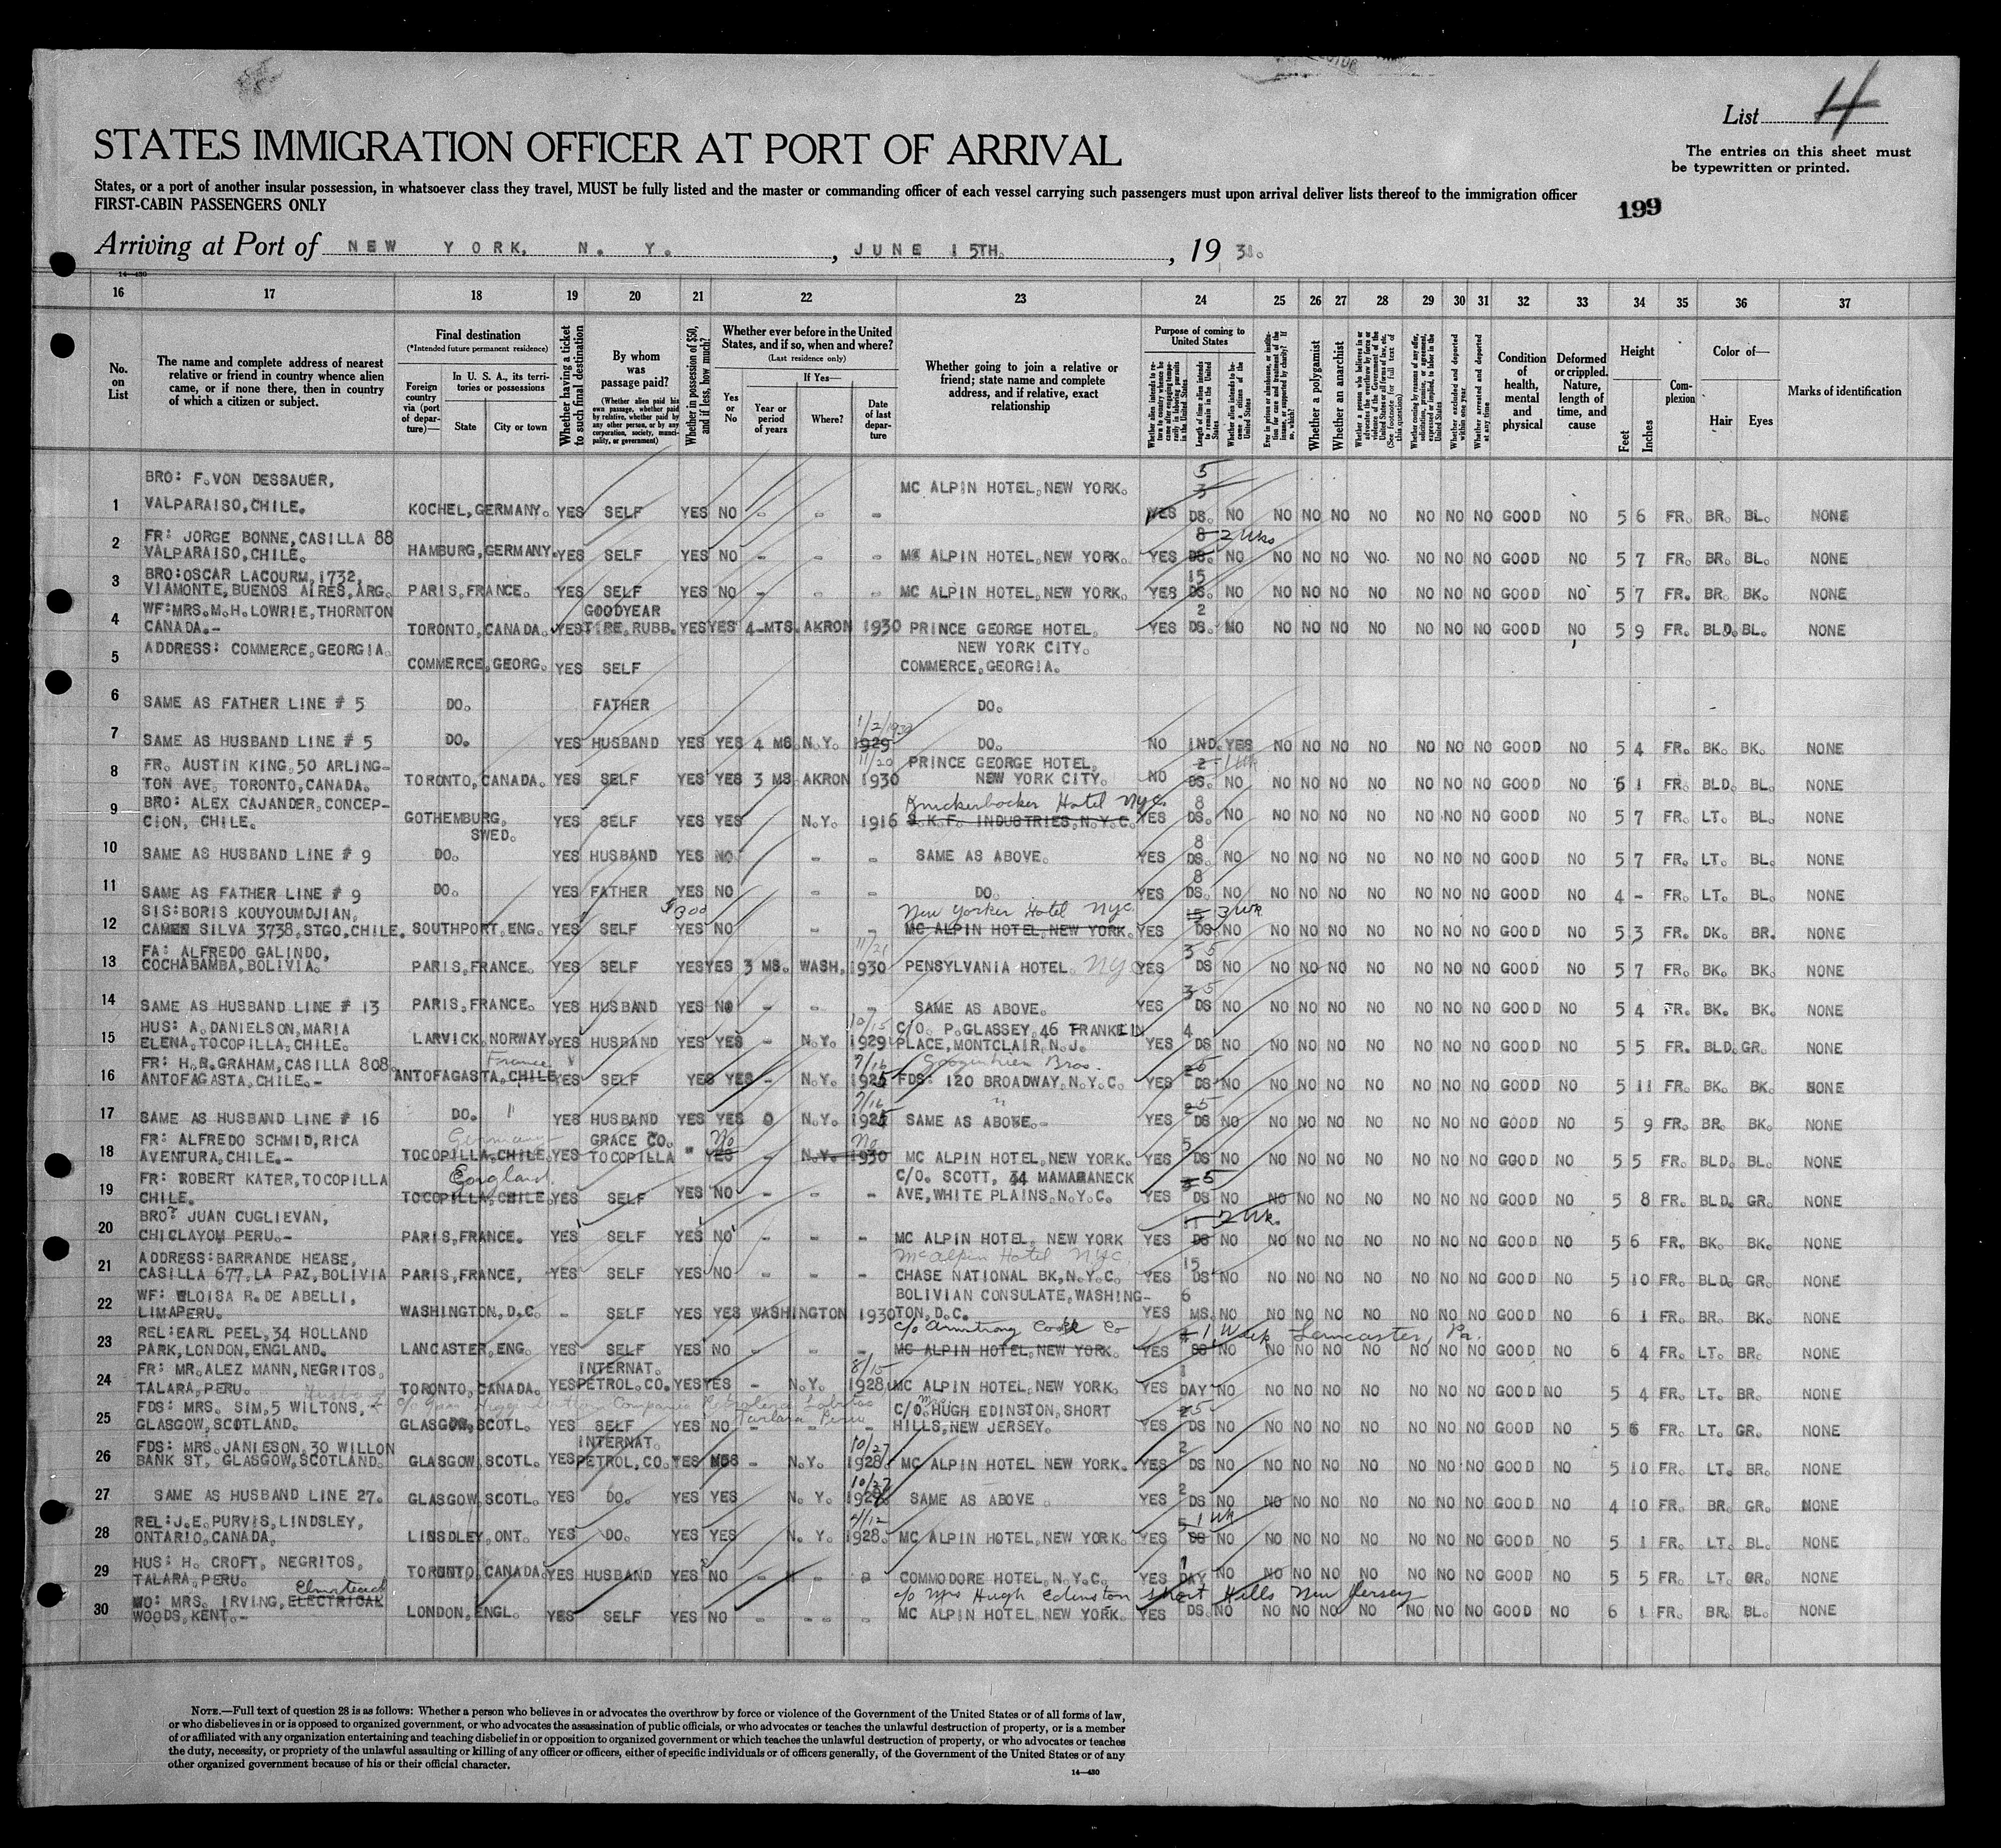 List 4
The entries on this sheet must
be typewritten or printed.
STATES IMMIGRATION OFFICER AT PORT OF ARRIVAL
States, or a port of another insular possession, in whatsoever class they travel, MUST be fully listed and the master or commanding officer of each vessel carrying such passengers must upon arrival deliver lists thereof to the immigration officer
FIRST-CABIN PASSENGERS ONLY
199
Arriving at Port of NEW YORK, N. Y. , JUNE 15TH. , 19 31.
14—430
16 17 18 19 20 21 22 23 24 25 26 27 28 29 30 31 32 33 34 35 36 37
No. on List
The name and complete address of nearest relative or friend in country whence alien came, or if none there, then in country of which a citizen or subject.
Final destination
(*Intended future permanent residence)
Foreign country via (port of departure)—
In U. S. A., its territories or possessions
State
City or town
Whether having a ticket to such final destination
By whom was passage paid?
(Whether alien paid his own passage, whether paid by relative, whether paid by any other person, or by any corporation, society, municipality, or government)
Whether in possession of $50, and if less, how much?
Whether ever before in the United States, and if so, when and where?
(Last residence only)
Yes or No
If Yes—
Year or period of years
Where?
Date of last departure
Whether going to join a relative or friend; state name and complete address, and if relative, exact relationship
Purpose of coming to United States
Whether alien intends to return to country whence he came after engaging temporarily in laboring pursuits in the United States
Length of time alien intends to remain in the United States
Whether alien intends to become a citizen of the United States
Ever in prison or almshouse, or institution for care and treatment of the insane, or supported by charity? If so, which?
Whether a polygamist
Whether an anarchist
Whether a person who believes in or advocates the overthrow by force or violence of the Government of the United States or all forms of law, etc. (See footnote for full text of this question)
Whether coming by reason of any offer, solicitation, promise, or agreement, expressed or implied, to labor in the United States
Whether excluded and deported within one year
Whether arrested and deported at any time
Condition of health, mental and physical
Deformed or crippled. Nature, length of time, and cause
Height
Feet
Inches
Complexion
Color of—
Hair
Eyes
Marks of identification
1 BRO: F.VON DESSAUER, VALPARAISO,CHILE. KOCHEL,GERMANY. YES SELF YES NO - - - MC ALPIN HOTEL,NEW YORK. YES 5 3 DS. NO NO NO NO NO NO NO NO GOOD NO 5 6 FR. BR. BL. NONE
2 FR: JORGE BONNE,CASILLA 88 VALPARAISO,CHILE. HAMBURG,GERMANY. YES SELF YES NO - - - MC ALPIN HOTEL,NEW YORK. YES 8 2 Wks DS. NO NO NO NO NO NO NO NO GOOD NO 5 7 FR. BR. BL. NONE
3 BRO:OSCAR LACOURM,1732, VIAMONTE,BUENOS AIRES,ARG. PARIS,FRANCE. YES SELF YES NO - - - MC ALPIN HOTEL,NEW YORK. YES 15 DS. NO NO NO NO NO NO NO NO GOOD NO 5 7 FR. BR. BK. NONE
4 WF:MRS.M.H.LOWRIE,THORNTON CANADA.- TORONTO,CANADA. YES GOODYEAR TIRE,RUBB. YES YES 4-MTS. AKRON 1930 PRINCE GEORGE HOTEL, NEW YORK CITY. YES 2 DS. NO NO NO NO NO NO NO NO GOOD NO 5 9 FR. BLD. BL. NONE
5 ADDRESS: COMMERCE,GEORGIA. COMMERCE,GEORG. YES SELF COMMERCE,GEORGIA.
6 SAME AS FATHER LINE # 5 DO. FATHER DO.
7 SAME AS HUSBAND LINE # 5 DO. YES HUSBAND YES YES 4 MS. N.Y. 1/2/1930 1929 DO. NO IND. YES NO NO NO NO NO NO NO GOOD NO 5 4 FR. BK. BK. NONE
8 FR. AUSTIN KING,50 ARLINGTON AVE, TORONTO,CANADA. TORONTO,CANADA. YES SELF YES YES 3 MS. AKRON 11/20 1930 PRINCE GEORGE HOTEL, NEW YORK CITY. NO 2 1 Wk DS. NO NO NO NO NO NO NO NO GOOD NO 6 1 FR. BLD. BL. NONE
9 BRO: ALEX CAJANDER,CONCEPCION, CHILE. GOTHEMBURG, SWED. YES SELF YES YES N.Y. 1916 Knickerbocker Hotel NYC. S.K.F. INDUSTRIES,N.Y.C. YES 8 DS. NO NO NO NO NO NO NO NO GOOD NO 5 7 FR. LT. BL. NONE
10 SAME AS HUSBAND LINE # 9 DO. YES HUSBAND YES NO - - SAME AS ABOVE. YES 8 DS. NO NO NO NO NO NO NO NO GOOD NO 5 7 FR. LT. BL. NONE
11 SAME AS FATHER LINE # 9 DO. YES FATHER YES NO - - DO. YES 8 DS. NO NO NO NO NO NO NO NO GOOD NO 4 - FR. LT. BL. NONE
12 SIS:BORIS KOUYOUMDJIAN, CAMEN SILVA 3738,STGO,CHILE. SOUTHPORT,ENG. YES SELF $300 YES NO - - New Yorker Hotel NYC. MC ALPIN HOTEL,NEW YORK. YES 15 3 Wk DS NO NO NO NO NO NO NO NO GOOD NO 5 3 FR. DK. BR. NONE
13 FA: ALFREDO GALINDO, COCHABAMBA,BOLIVIA. PARIS,FRANCE. YES SELF YES YES 3 MS. WASH. 11/21 1930 PENSYLVANIA HOTEL. NYC YES 3 5 DS NO NO NO NO NO NO NO NO GOOD NO 5 7 FR. BK. BK. NONE
14 SAME AS HUSBAND LINE # 13 PARIS,FRANCE. YES HUSBAND YES NO - - - SAME AS ABOVE. YES 3 5 DS NO NO NO NO NO NO NO NO GOOD NO 5 4 FR. BK. BK. NONE
15 HUS: A. DANIELSON,MARIA ELENA,TOCOPILLA,CHILE. LARVICK,NORWAY. YES HUSBAND YES YES - N.Y. 10/15 1929 C/O. P.GLASSEY,46 FRANKLIN PLACE,MONTCLAIR,N.J. YES 4 DS NO NO NO NO NO NO NO NO GOOD NO 5 5 FR. BLD. GR. NONE
16 FR: H.B.GRAHAM,CASILLA 808. ANTOFAGASTA,CHILE.- France ANTOFAGASTA,CHILE YES SELF YES YES - N.Y. 7/16 1925 FDS: 120 BROADWAY,N.Y.C. YES 25 DS NO NO NO NO NO NO NO NO GOOD NO 5 11 FR. BK. BK. NONE
17 SAME AS HUSBAND LINE # 16 DO. " YES HUSBAND YES YES 0 N.Y. 7/16 1925 SAME AS ABOVE.- YES 25 DS NO NO NO NO NO NO NO NO GOOD NO 5 9 FR. BR. BK. NONE
18 FR: ALFREDO SCHMID,RICA AVENTURA,CHILE.- Germany TOCOPILLA,CHILE. YES GRACE CO. TOCOPILLA " No YES - N.Y. No 1930 MC ALPIN HOTEL,NEW YORK. YES 5 DS NO NO NO NO NO NO NO NO GOOD NO 5 5 FR. BLD. BL. NONE
19 FR: ROBERT KATER,TOCOPILLA CHILE. England. TOCOPILLA,CHILE. YES SELF YES NO - - - C/O. SCOTT, 44 MAMARANECK AVE,WHITE PLAINS,N.Y.C. YES 5 DS NO NO NO NO NO NO NO NO GOOD NO 5 8 FR. BLD. GR. NONE
20 BRO: JUAN CUGLIEVAN, CHICLAYOM PERU.- PARIS,FRANCE. YES SELF YES NO - - - MC ALPIN HOTEL, NEW YORK YES 2 Wk. DS NO NO NO NO NO NO NO NO GOOD NO 5 6 FR. BK. BK. NONE
21 ADDRESS:BARRANDE HEASE, CASILLA 677,LA PAZ,BOLIVIA PARIS,FRANCE. YES SELF YES NO - - - McAlpin Hotel NYC. CHASE NATIONAL BK,N.Y.C. YES 15 DS NO NO NO NO NO NO NO NO GOOD NO 5 10 FR. BLD. GR. NONE
22 WF: ELOISA R.DE ABELLI, LIMAPERU. WASHINGTON,D.C. - SELF YES YES WASHINGTON 1930 BOLIVIAN CONSULATE,WASHINGTON,D.C. YES 6 MS. NO NO NO NO NO NO NO NO GOOD NO 6 1 FR. BR. BK. NONE
23 REL:EARL PEEL,34 HOLLAND PARK,LONDON,ENGLAND. LANCASTER,ENG. YES SELF YES NO - - - c/o Armstrong Cork Co Lancaster, Pa. MC ALPIN HOTEL,NEW YORK. YES 1 Week DS NO NO NO NO NO NO NO NO GOOD NO 6 4 FR. LT. BR. NONE
24 FR: MR.ALEZ MANN,NEGRITOS, TALARA,PERU. TORONTO,CANADA. YES INTERNAT. PETROL.CO. YES YES - N.Y. 8/15 1928 MC ALPIN HOTEL,NEW YORK. YES 1 DAY NO NO NO NO NO NO NO NO GOOD NO 5 4 FR. LT. BR. NONE
25 FDS: MRS. SIM,5 WILTONS, GLASGOW,SCOTLAND. GLASGOW,SCOTL. YES SELF YES NO - - - C/O. Mrs. HUGH EDINSTON,SHORT HILLS,NEW JERSEY. YES 25 DS NO NO NO NO NO NO NO NO GOOD NO 5 6 FR. LT. GR. NONE
26 FDS: MRS.JANIESON,30 WILLON BANK ST, GLASGOW,SCOTLAND. GLASGOW,SCOTL. YES INTERNAT. PETROL,CO. YES YES - N.Y. 10/27 1928. MC ALPIN HOTEL NEW YORK. YES 2 DS NO NO NO NO NO NO NO NO GOOD NO 5 10 FR. LT. BR. NONE
27 SAME AS HUSBAND LINE 27. GLASGOW,SCOTL. YES DO. YES YES N. Y. 10/27 1928 SAME AS ABOVE . YES 2 DS NO NO NO NO NO NO NO NO GOOD NO 4 10 FR. BR. GR. NONE
28 REL:J.E.PURVIS,LINDSLEY, ONTARIO,CANADA. LINSDLEY,ONT. YES DO. YES YES N. Y. 4/12 1928. MC ALPIN HOTEL,NEW YORK. YES 5 1 Wk DS NO NO NO NO NO NO NO NO GOOD NO 5 1 FR. LT. BL. NONE
29 HUS: H. CROFT, NEGRITOS, TALARA,PERU. TORONTO,CANADA. YES HUSBAND YES NO - - - COMMODORE HOTEL,N.Y.C. YES 1 DAY NO NO NO NO NO NO NO NO GOOD NO 5 5 FR. LT. GR. NONE
30 MO: MRS. IRVING, Elmstead ELECTRICAL WOODS,KENT.- LONDON,ENGL. YES SELF YES NO - - - - c/o Mrs Hugh Edinston Short Hills New Jersey MC ALPIN HOTEL,NEW YORK. YES DS. NO NO NO NO NO NO NO NO GOOD NO 6 1 FR. BR. BL. NONE
NOTE.—Full text of question 28 is as follows: Whether a person who believes in or advocates the overthrow by force or violence of the Government of the United States or of all forms of law,
or who disbelieves in or is opposed to organized government, or who advocates the assassination of public officials, or who advocates or teaches the unlawful destruction of property, or is a member
of or affiliated with any organization entertaining and teaching disbelief in or opposition to organized government or which teaches the unlawful destruction of property, or who advocates or teaches
the duty, necessity, or propriety of the unlawful assaulting or killing of any officer or officers, either of specific individuals or of officers generally, of the Government of the United States or of any
other organized government because of his or their official character.
14—430